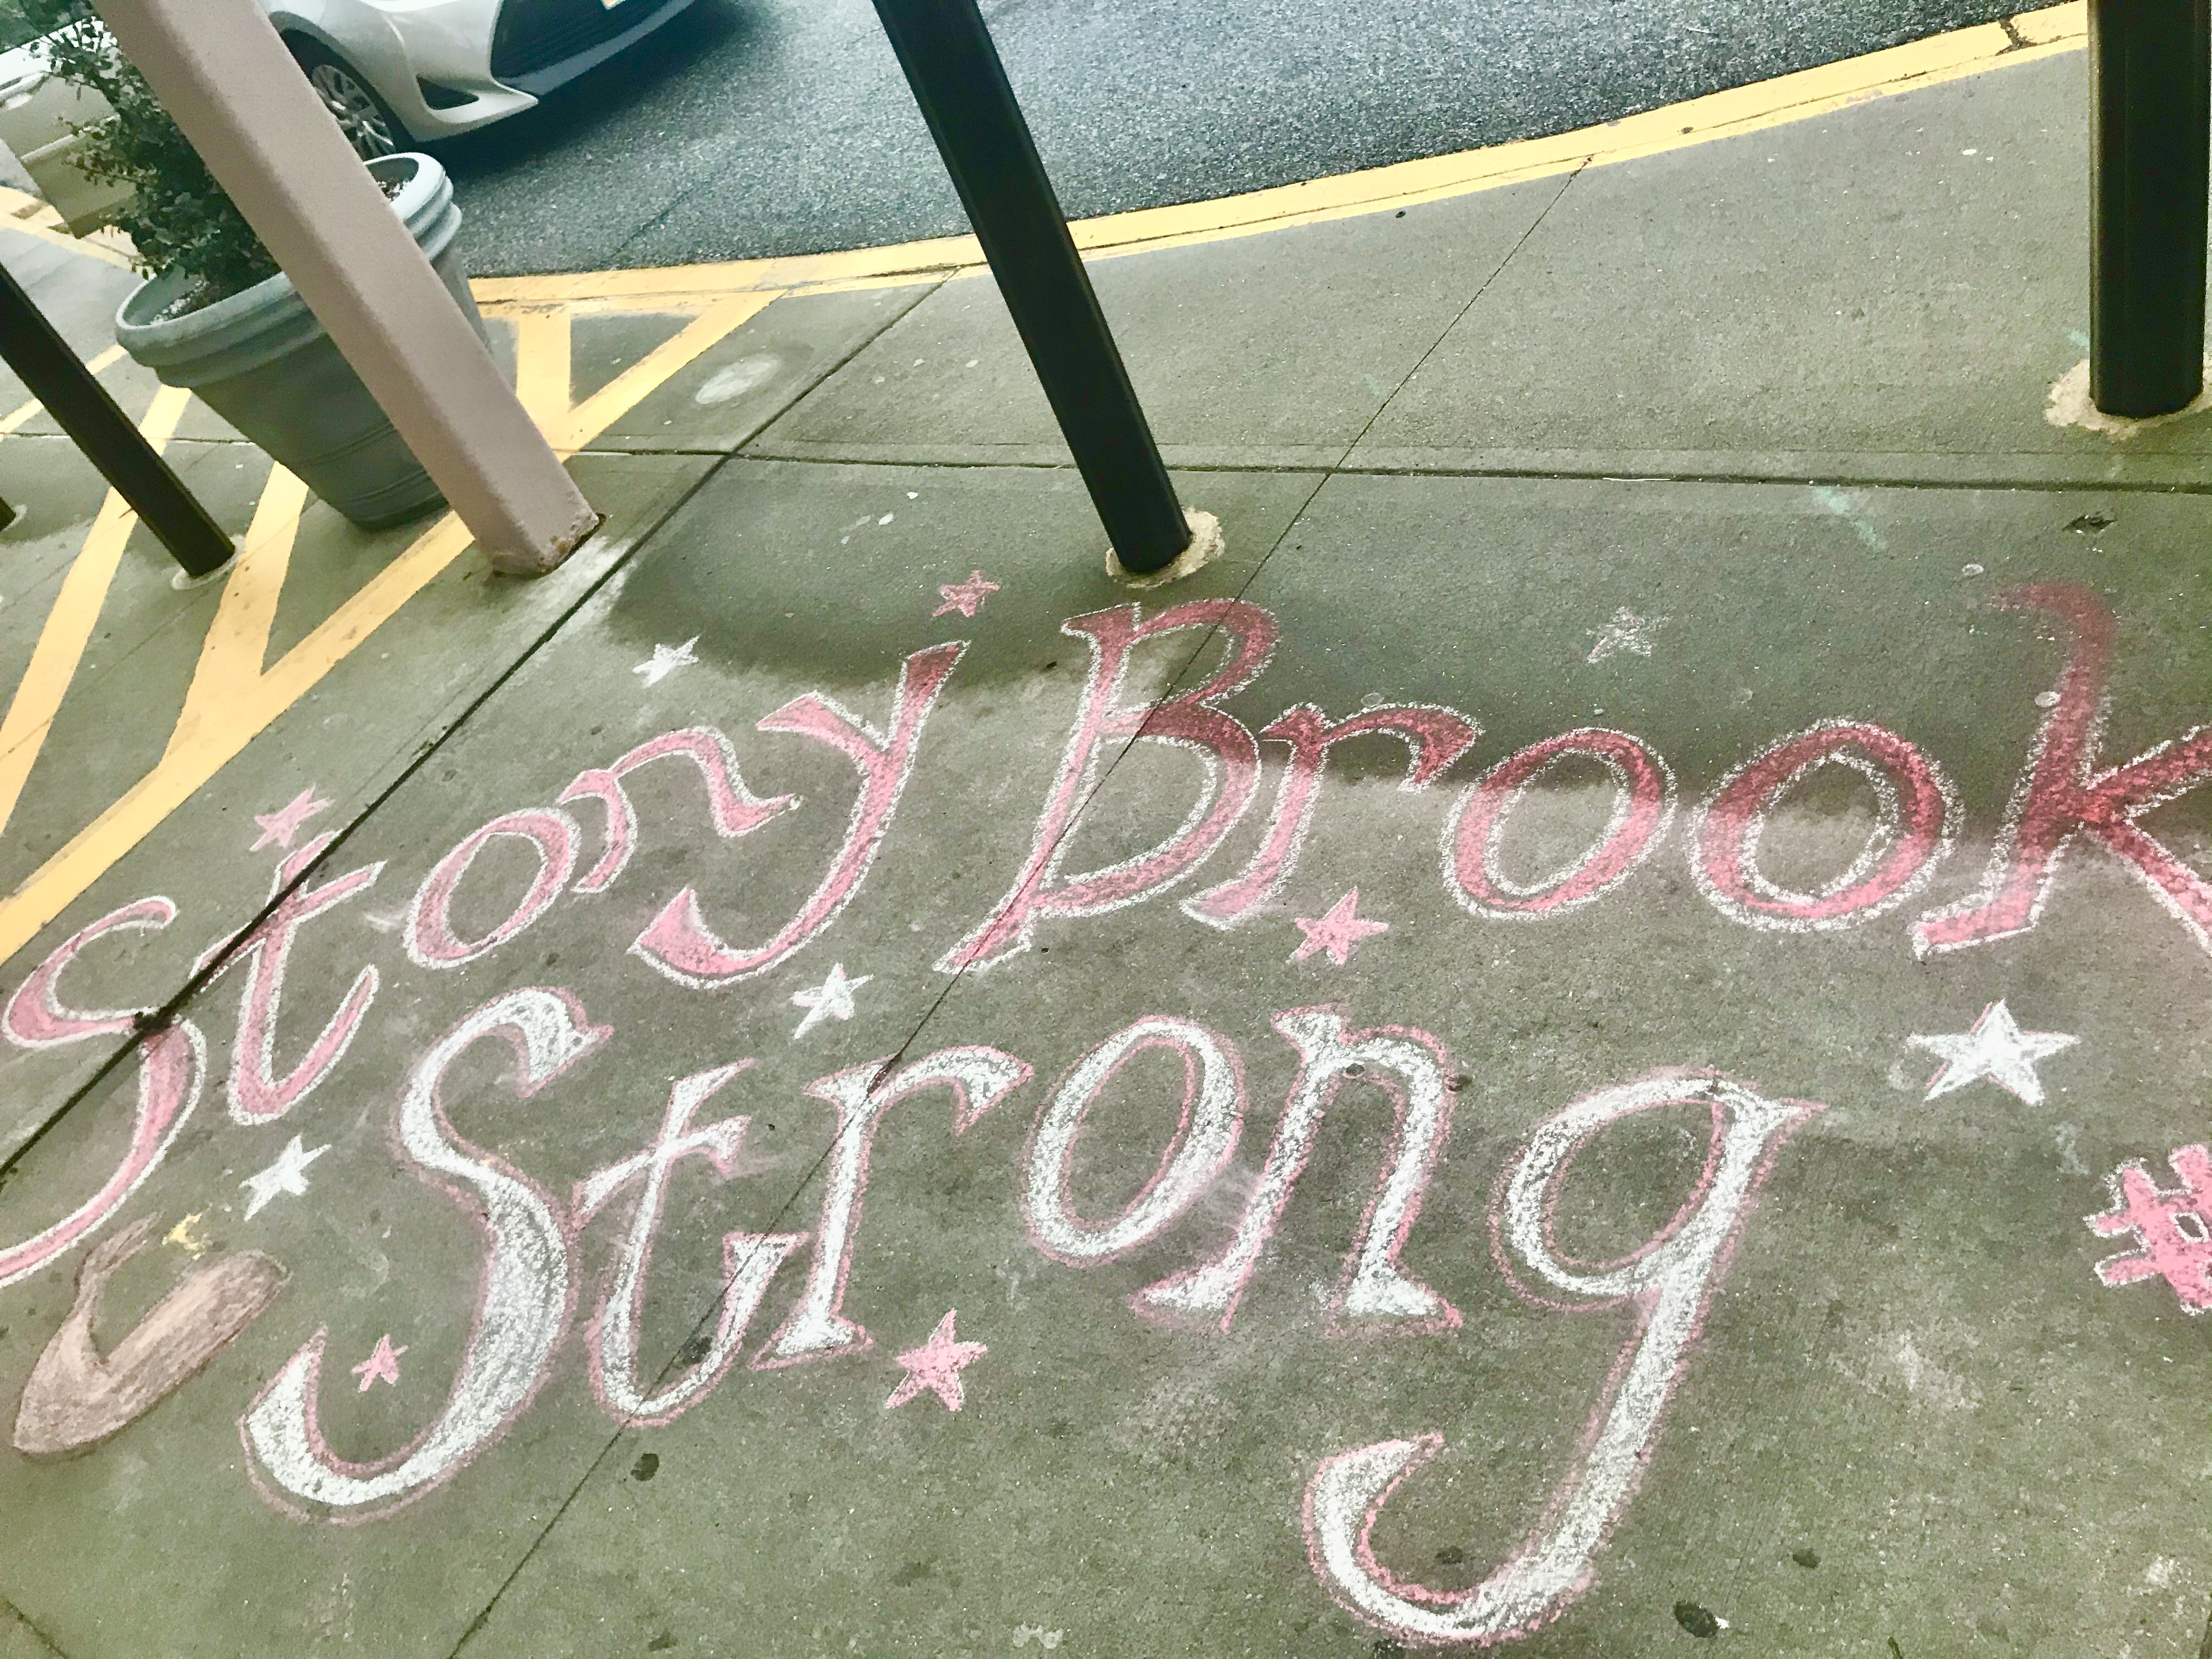 Stony Brook
Strong
#